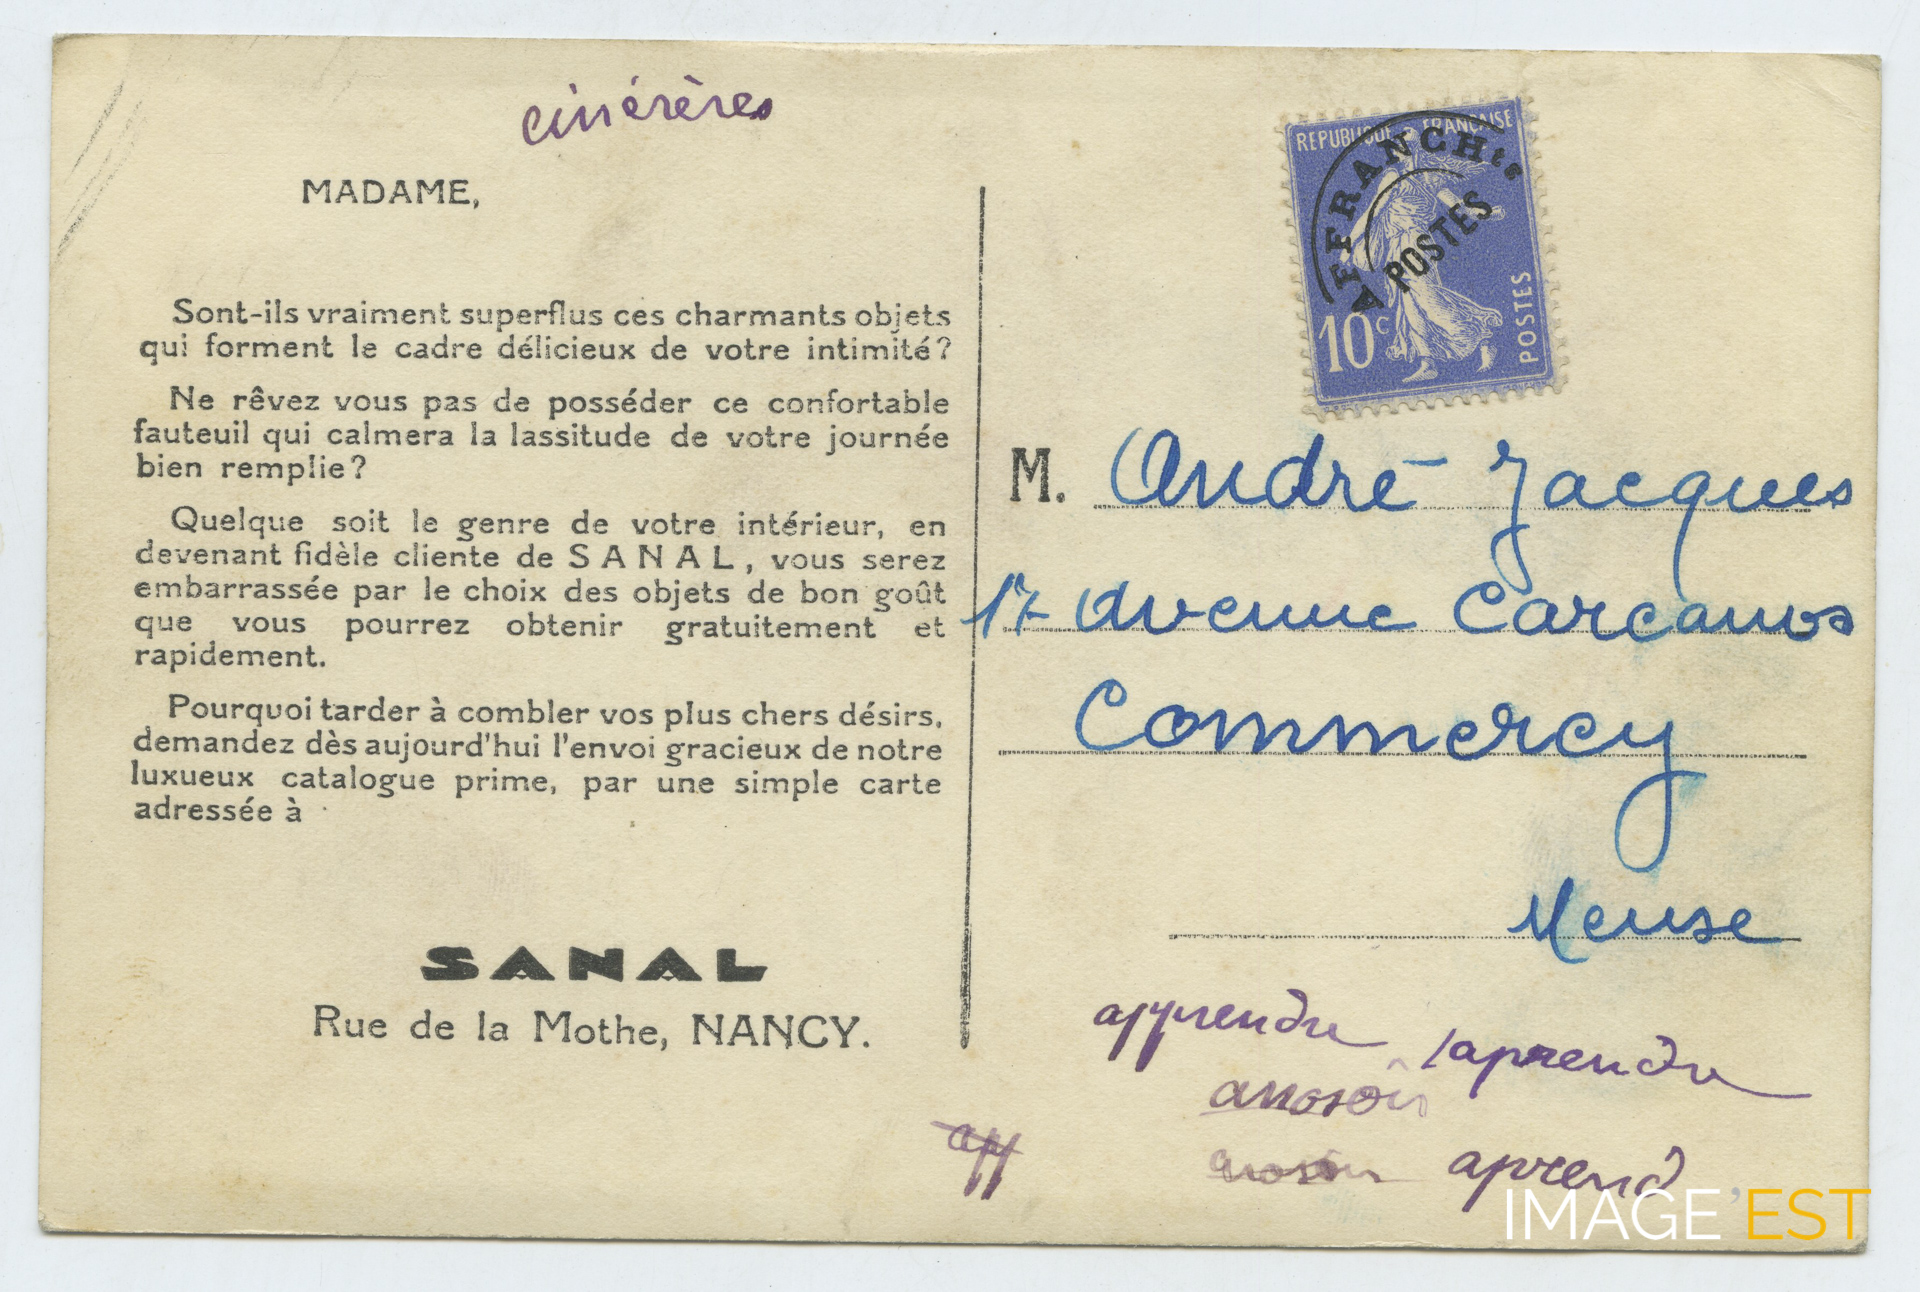 cinérères
MADAME,
Sont-ils vraiment superflus ces charmants objets
qui forment le cadre délicieux de votre intimité?
Ne rêvez vous pas de posséder ce confortable
fauteuil qui calmera la lassitude de votre journée
bien remplie?
Quelque soit le genre de votre intérieur, en
devenant fidèle cliente de SANAL, vous serez
embarrassée par le choix des objets de bon goût
que vous pourrez obtenir gratuitement et
rapidement.
Pourquoi tarder à combler vos plus chers désirs,
demandez dès aujourd'hui l'envoi gracieux de notre
luxueux catalogue prime, par une simple carte
adressée à
SANAL
Rue de la Mothe, NANCY.
REPUBLIQUE FRANÇAISE
AFFRANCHts
POSTES
10c
POSTES
M. André Jacques
17 Avenue Carcanos
Commercy
Meuse
apprendre
aprendre
app
aprend
IMAGE EST